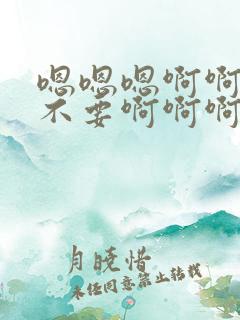 嗯嗯嗯啊啊
不要啊啊啊
月晓惜
未经同意禁止转载